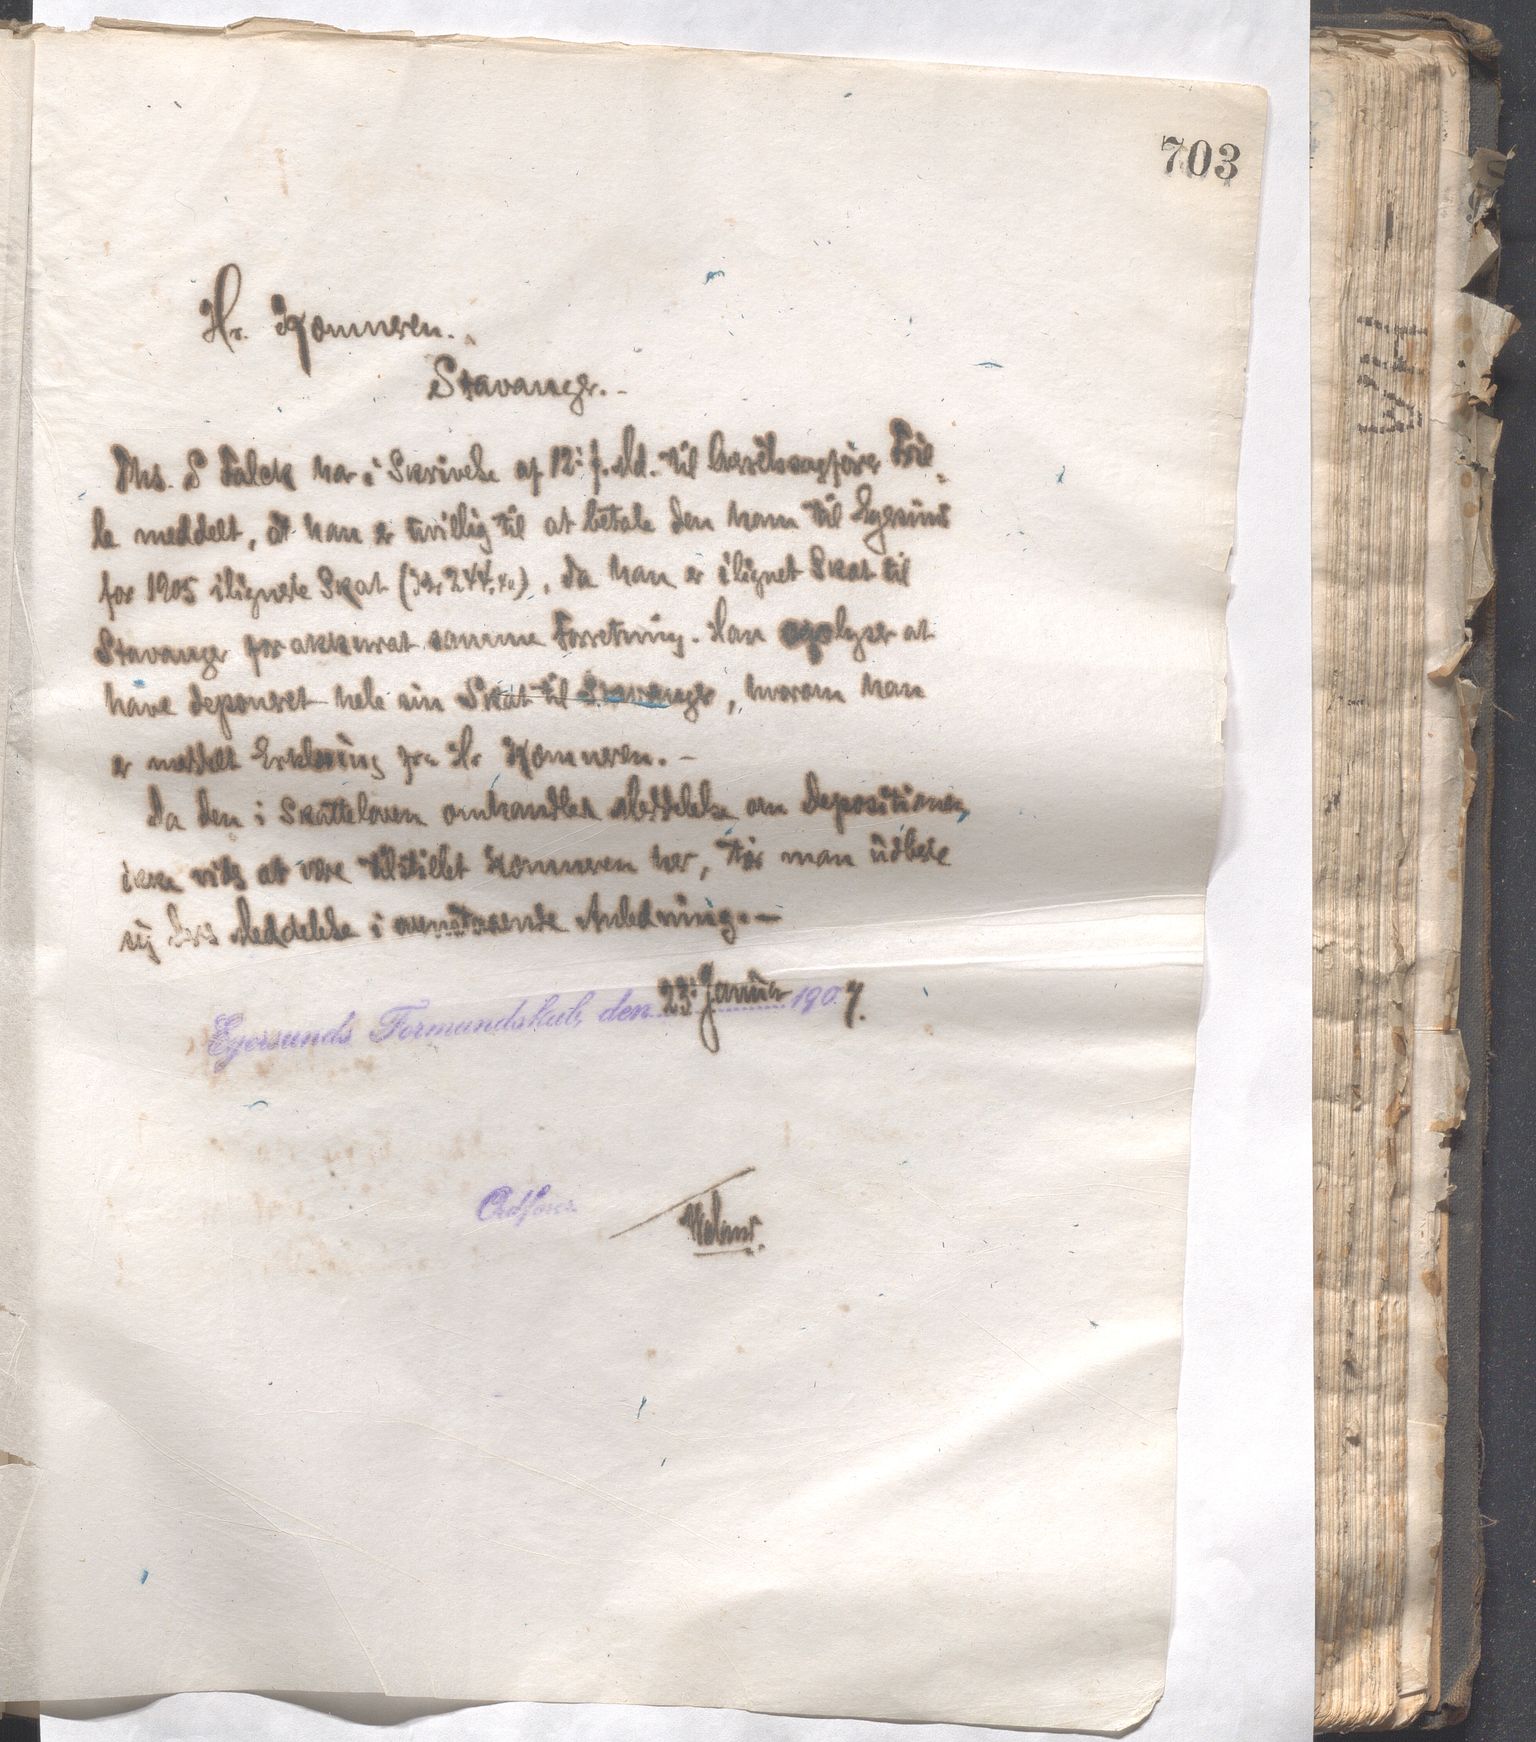 703
Hr. Kemneren.
Stavanger.-
Ths. S Falck har i Skrivelse af 12te f. Md. til Overretssagfører Friele
meddelt, at han er uvillig til at betale den ham til Egersund
for 1905 ilignede Skat (Kr 244.40), da han er ilignet Skat til
Stavanger for akkurat samme Forretning. Han oplyser at
have deponeret hele sin Skat til Stavanger, hvorom han
er meddelt Erklæring fra Hr Kemneren.-
Da den i Skatteloven omhandlede Meddelelse om Depositionen,
ikke vides at være tilstillet Kemneren her, tør man udbede
sig Deres Meddelelse i ovennævnte Anledning.-
Egersunds Formandskab, den 23. Januar 1907.
Ordfører